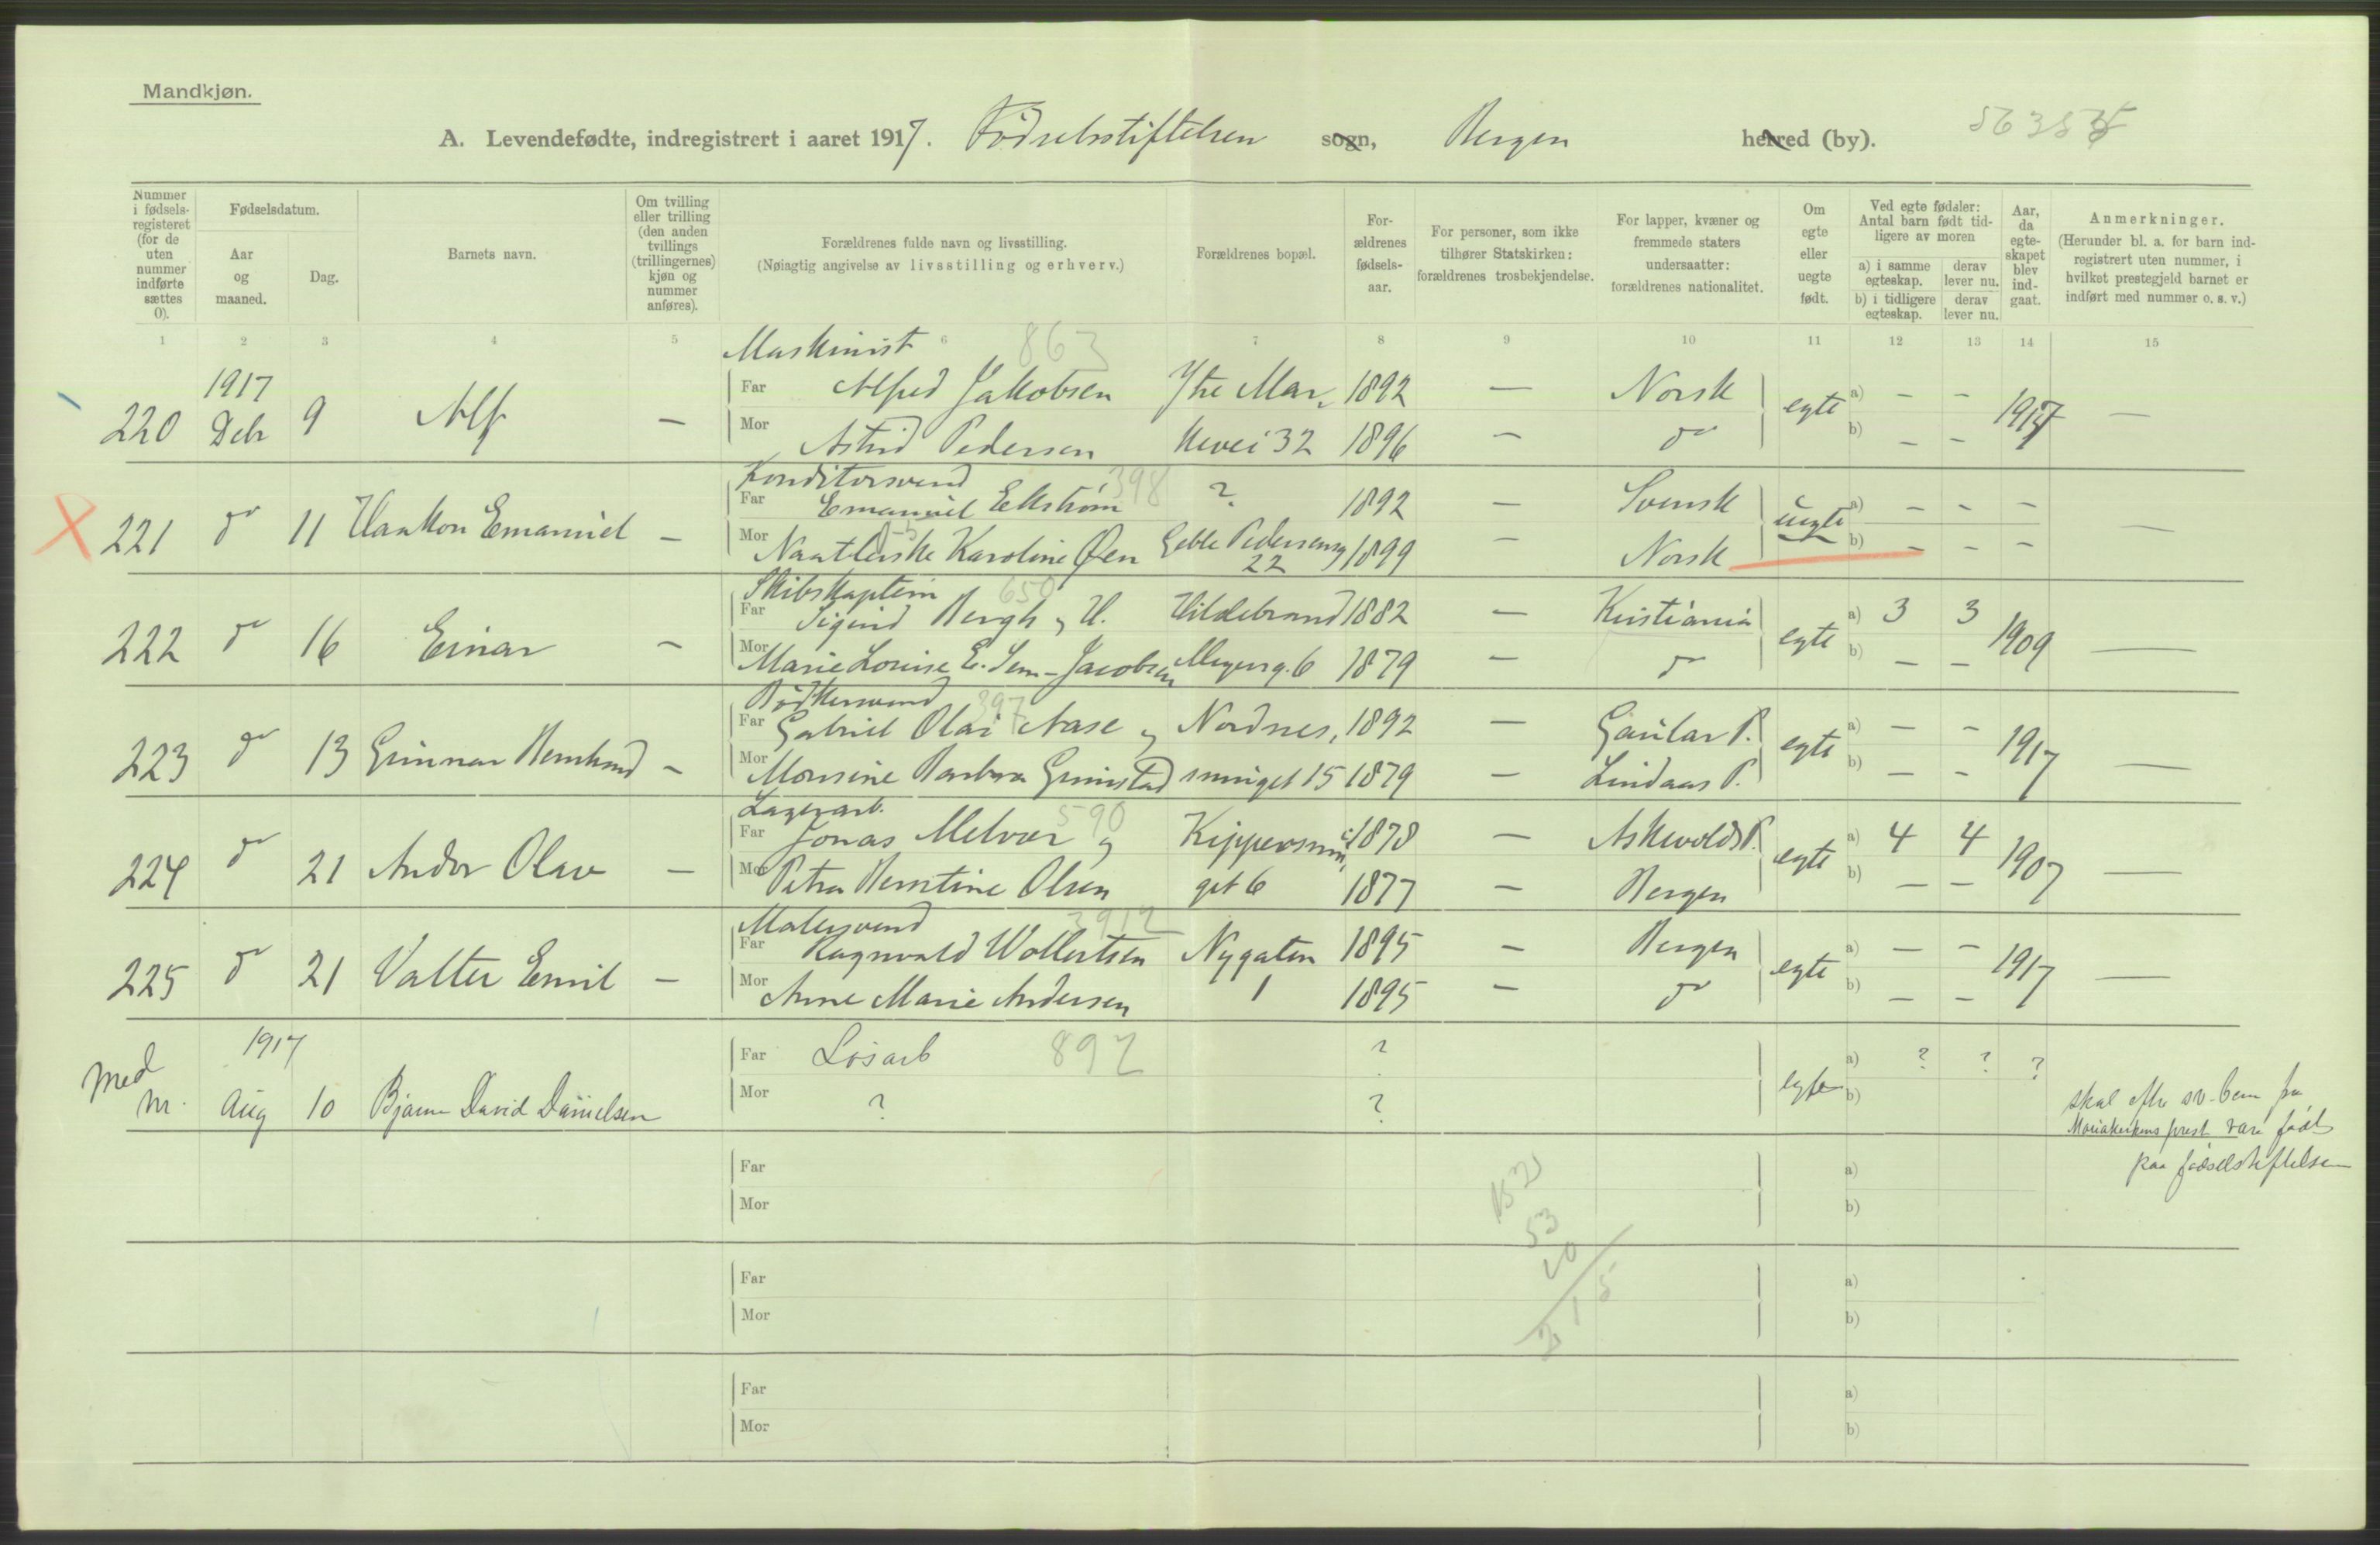 Mandkjøn.
A. Levendefødte, indregistrert i aaret 1917. Fødselsstiftelsen sogn, Bergen herred (by).
Nummer i fødselsregisteret (for de uten nummer indførte sættes 0).
Fødselsdatum.
Aar og maaned.
Dag.
Barnets navn.
Om tvilling eller trilling (den anden tvillings (trillingernes) kjøn og nummer anføres).
Forældrenes fulde navn og livsstilling.
(Nøiagtig angivelse av livsstilling og erhverv.)
Forældrenes bopæl.
Forældrenes fødselsaar.
For personer, som ikke tilhører Statskirken: forældrenes trosbekjendelse.
For lapper, kvæner og fremmede staters undersaatter: forældrenes nationalitet.
Om egte eller uegte født.
Ved egte fødsler: Antal barn født tidligere av moren
a) i samme egteskap. derav lever nu.
b) i tidligere egteskap. derav lever nu.
Aar, da egteskapet blev indgaat.
Anmerkninger.
(Herunder bl. a. for barn indregistrert uten nummer, i hvilket prestegjeld barnet er indført med nummer o. s. v.)
1 2 3 4 5 6 7 8 9 10 11 12 13 14 15
Maskinist 863
1917 Far Alfred Jakobsen Ytre Mar- 1892 — Norsk a) — —
220 Debr 9 Alf — egte 1917 —
Mor Astrid Pedersen kevei 32 1896 — do b) — —
Konditorsvend 398
Far Emanuel Ekstrøm ? 1892 — Svensk a) — — —
221 do 11 Haakon Emanuel — uegte —
Mor Naatlerske Karoline Øen Geble Pedersensg 22 1899 — Norsk b) — — —
Skibskaptein 650
Far Sigurd Bergh, H. Hildebrand 1882 — Kristiania a) 3 3
222 do 16 Einar — egte 1909 —
Mor Marie Louise E. Sem-Jacobsen Meyersg. 6 1879 — do b) — —
Bødkersvend 397
Far Gabriel Olai Aase og Nordnes, 1892 — Gaular P. a) — —
223 do 13 Gunnar Bernhard — egte 1917 —
Mor Monsine Barbra Grimstad smuget 15 1879 — Lindaas P. b) — —
Lagerarb. 590
Far Jonas Melvær og Kippersmu 1878 — Askevolds P. a) 4 4
224 do 21 Andor Olav — egte 1907 —
Mor Petra Berntine Olsen get 6 1877 — Bergen b) — —
Malersvend 3912
Far Ragnvald Wollertsen Nygaten 1895 — Bergen a) — —
225 do 21 Valter Emil — egte 1917 —
Mor Anne Marie Andersen 1 1895 — do b) — —
1917 Far Løsarb 892 ? a) ? ? ?
Med nr. Aug 10 Bjarne David Danielsen egte
Mor ? ? b)
skal efter sv. bem fra
Mariakirkens prest være født
paa fødselsstiftelsen
Far a)
Mor b)
152
53
10
215
Far a)
Mor b)
Far a)
Mor b)